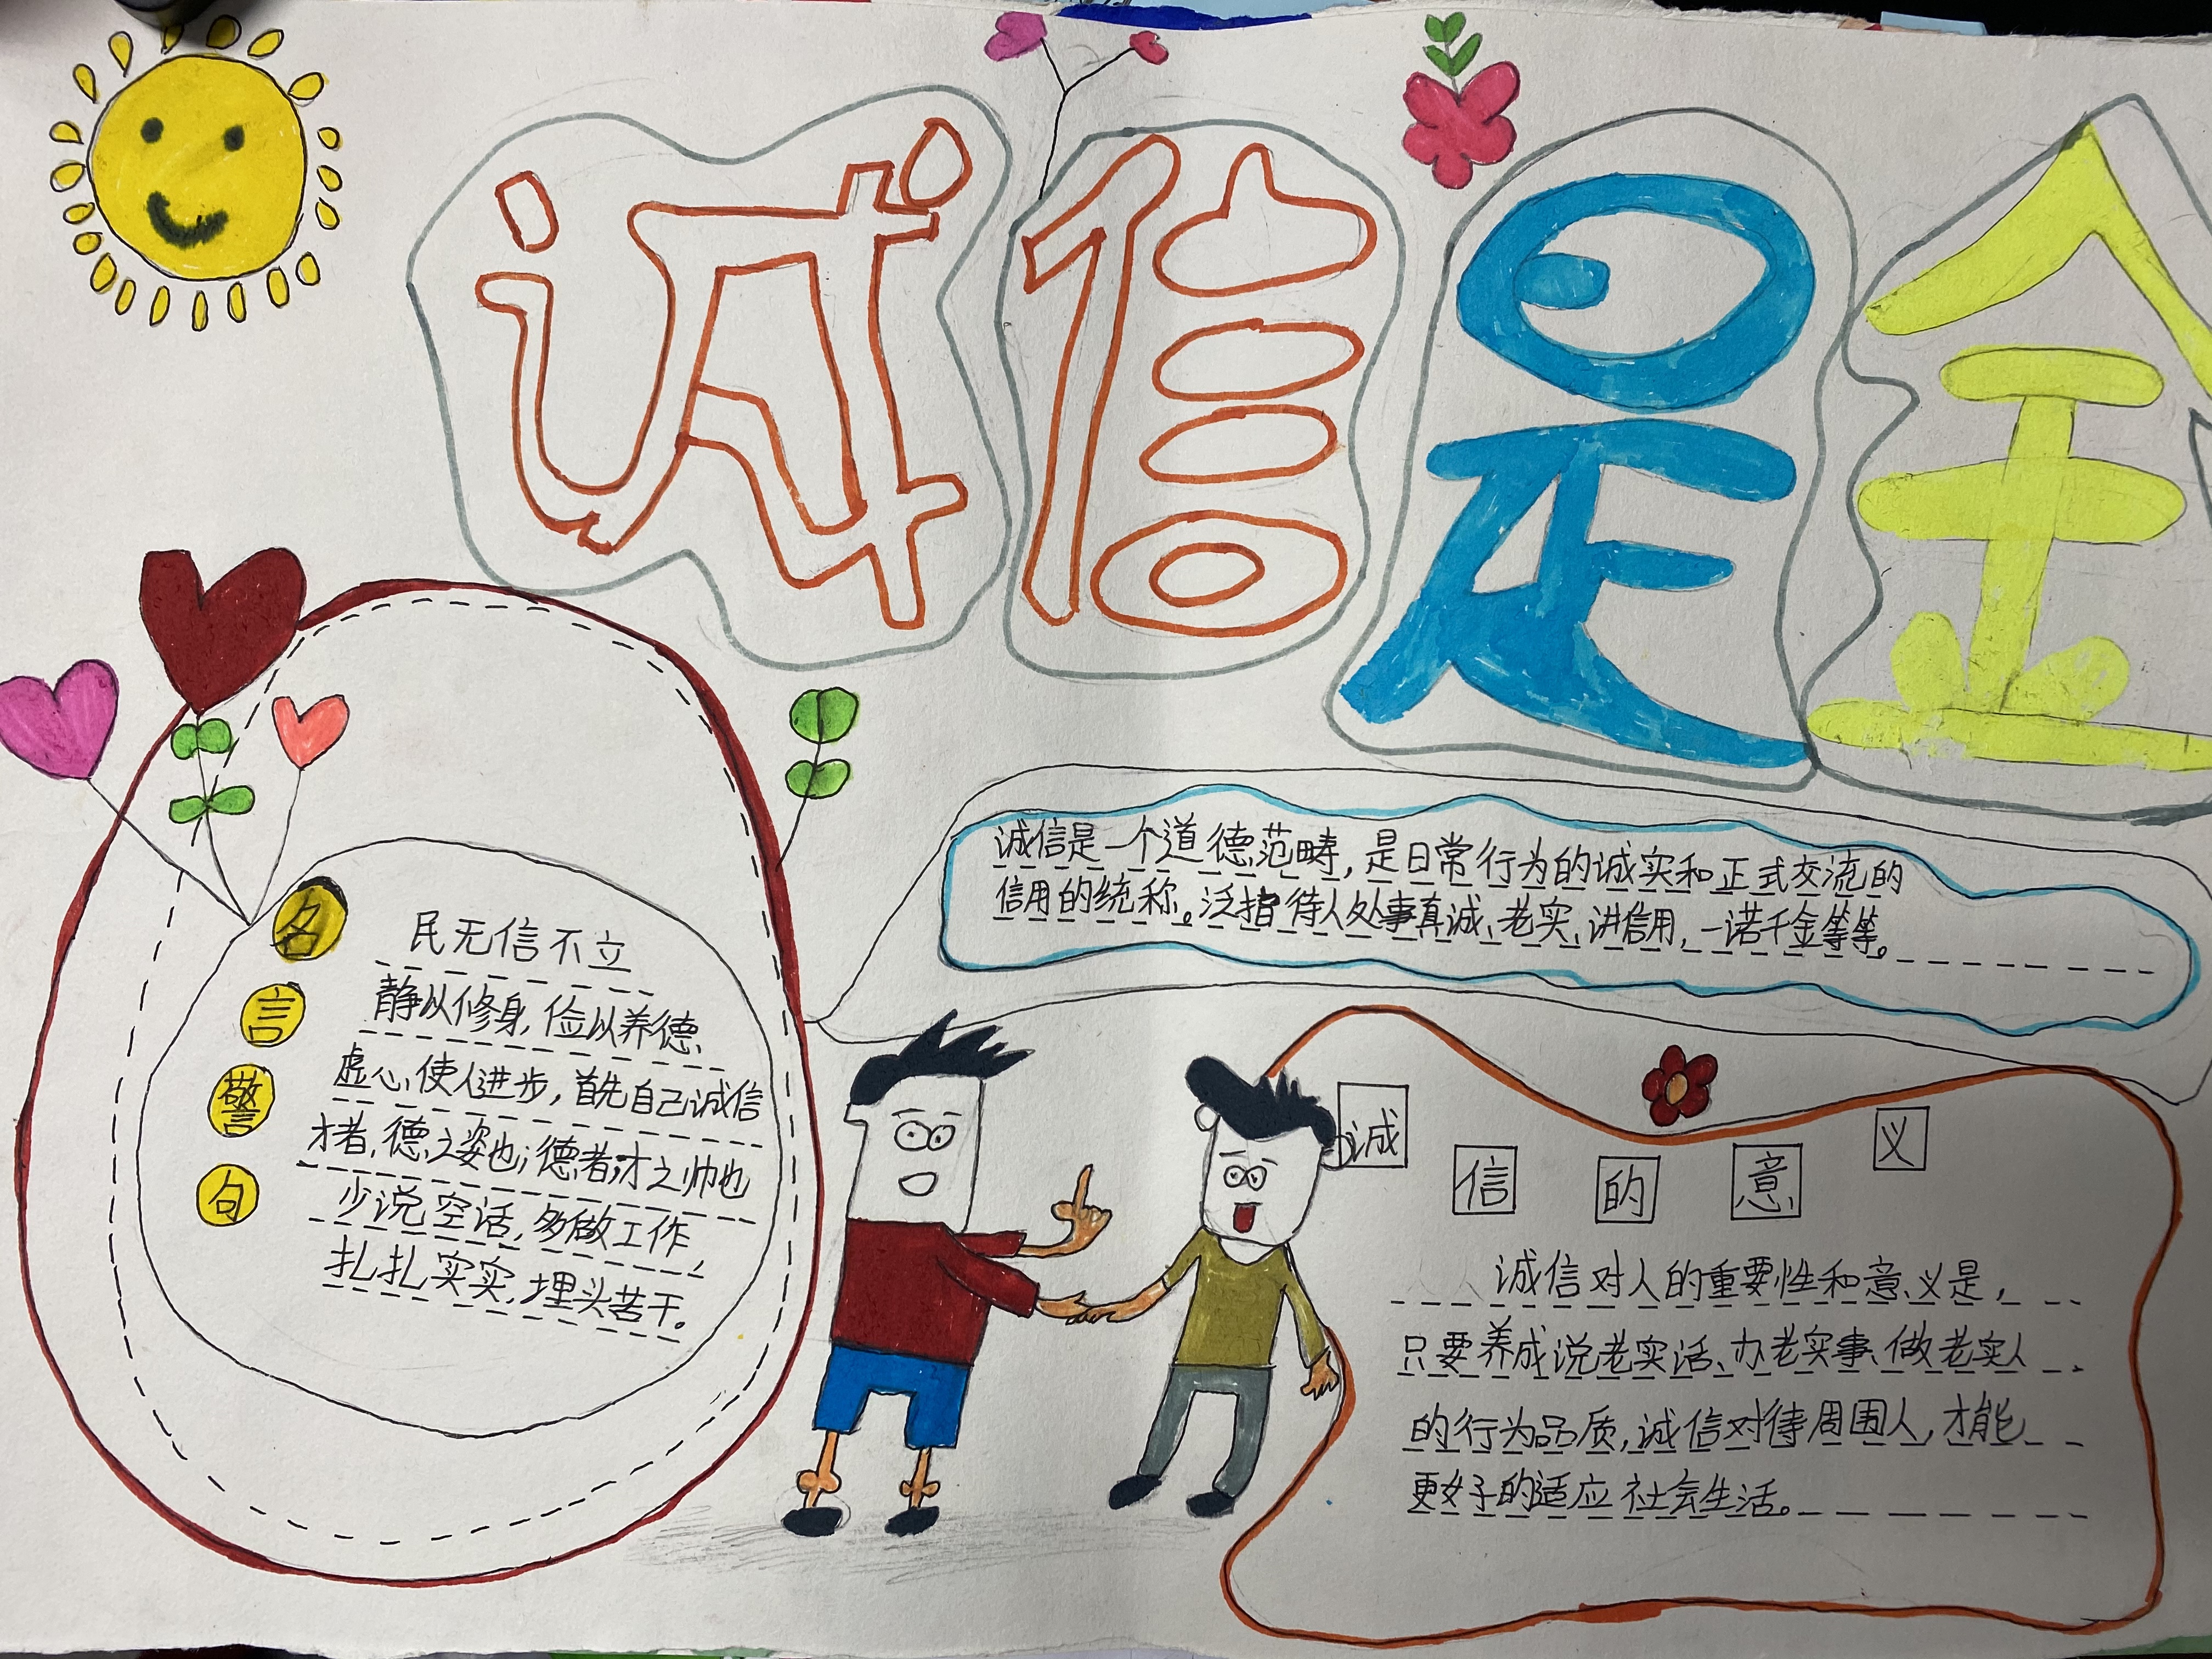 诚信是金
诚信是一个道德范畴，是日常行为的诚实和正式交流的
信用的统称。泛指待人处事真诚、老实、讲信用，一诺千金等等。
名言警句
民无信不立
静以修身，俭以养德、
虚心使人进步，首先自己诚信
才者，德之姿也；德者，才之帅也
少说空话，多做工作，
扎扎实实，埋头苦干。
诚信的意义
诚信对人的重要性和意义是，
只要养成说老实话、办老实事、做老实人
的行为品质，诚信对待周围人，才能
更好的适应社会生活。